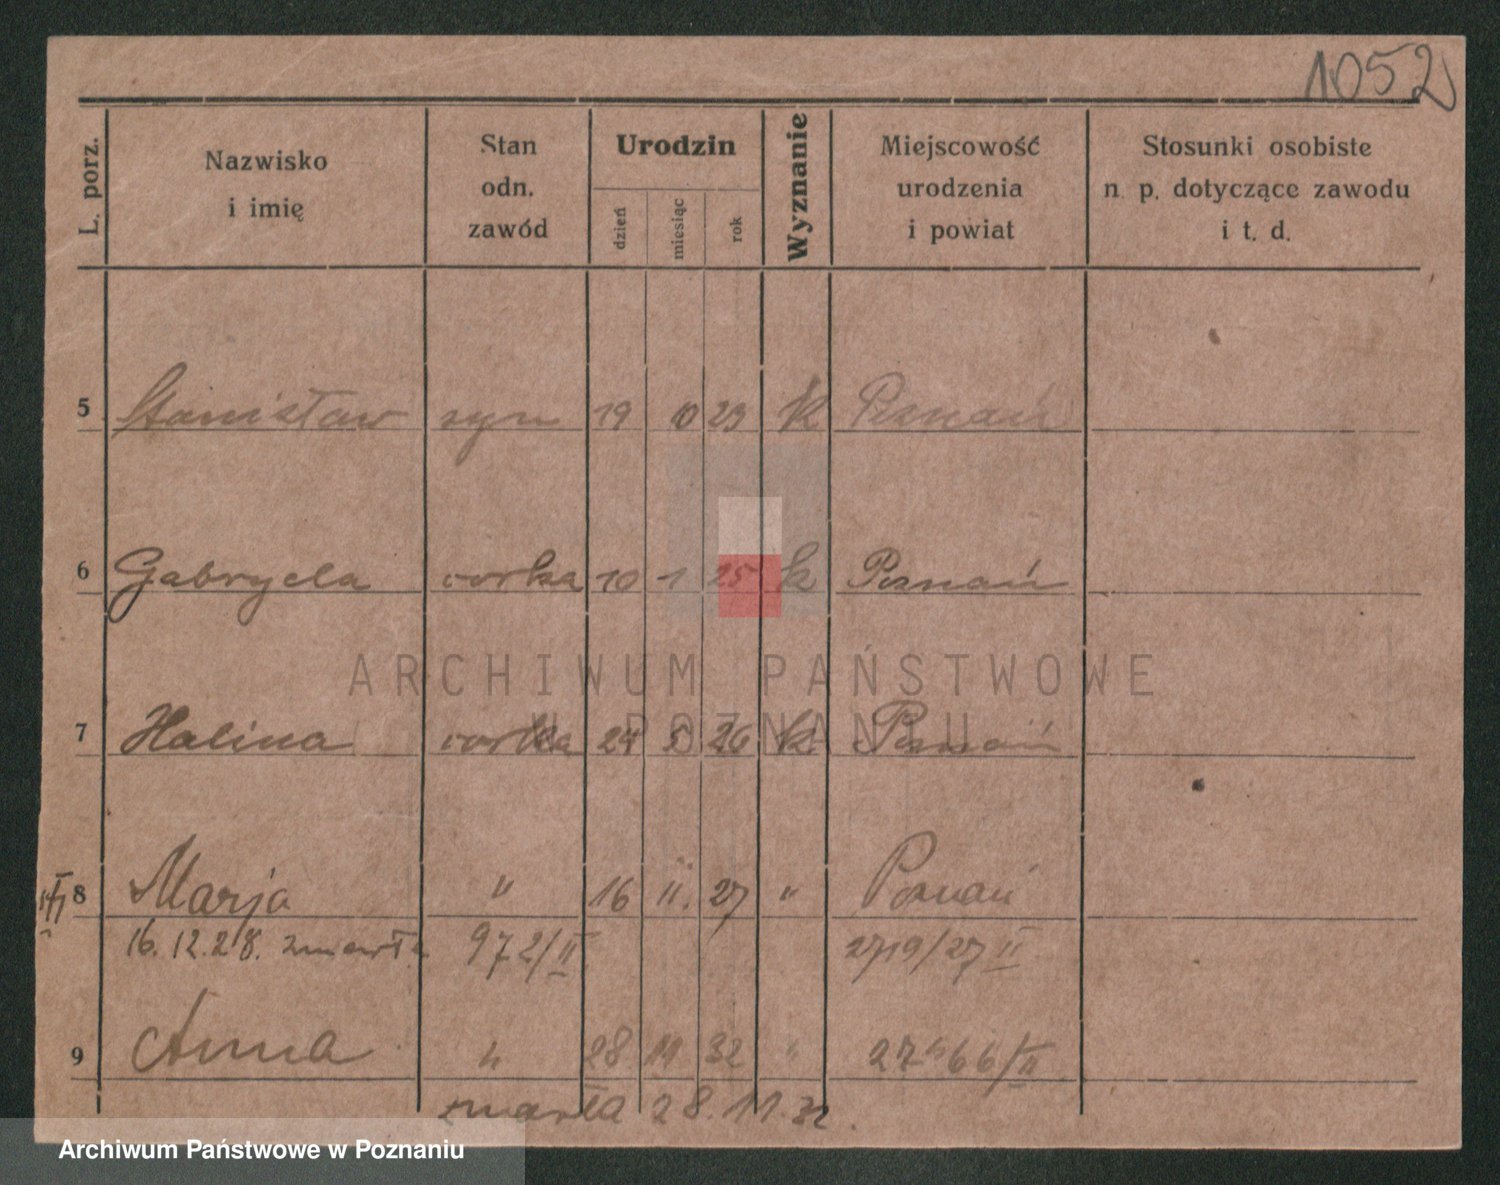 1052
L. porz.
Nazwisko
i imię
Stan
odn.
zawód
Urodzin
dzień
miesiąc
rok
Wyznanie
Miejscowość
urodzenia
i powiat
Stosunki osobiste
n. p. dotyczące zawodu
i t. d.
5 Stanisław syn 19 10 23 k Poznań
6 Gabryela corka 10 1 25 k Poznań
ARCHIWUM PAŃSTWOWE
W POZNANIU
7 Halina corka 24 26 k Poznań
8 Marja " 16 11. 27 " Poznań
16.12.28. zmarła 972/II 2719/27 II
9 Anna " 28 11 32 "
zmarła 28.11.32.
Archiwum Państwowe w Poznaniu